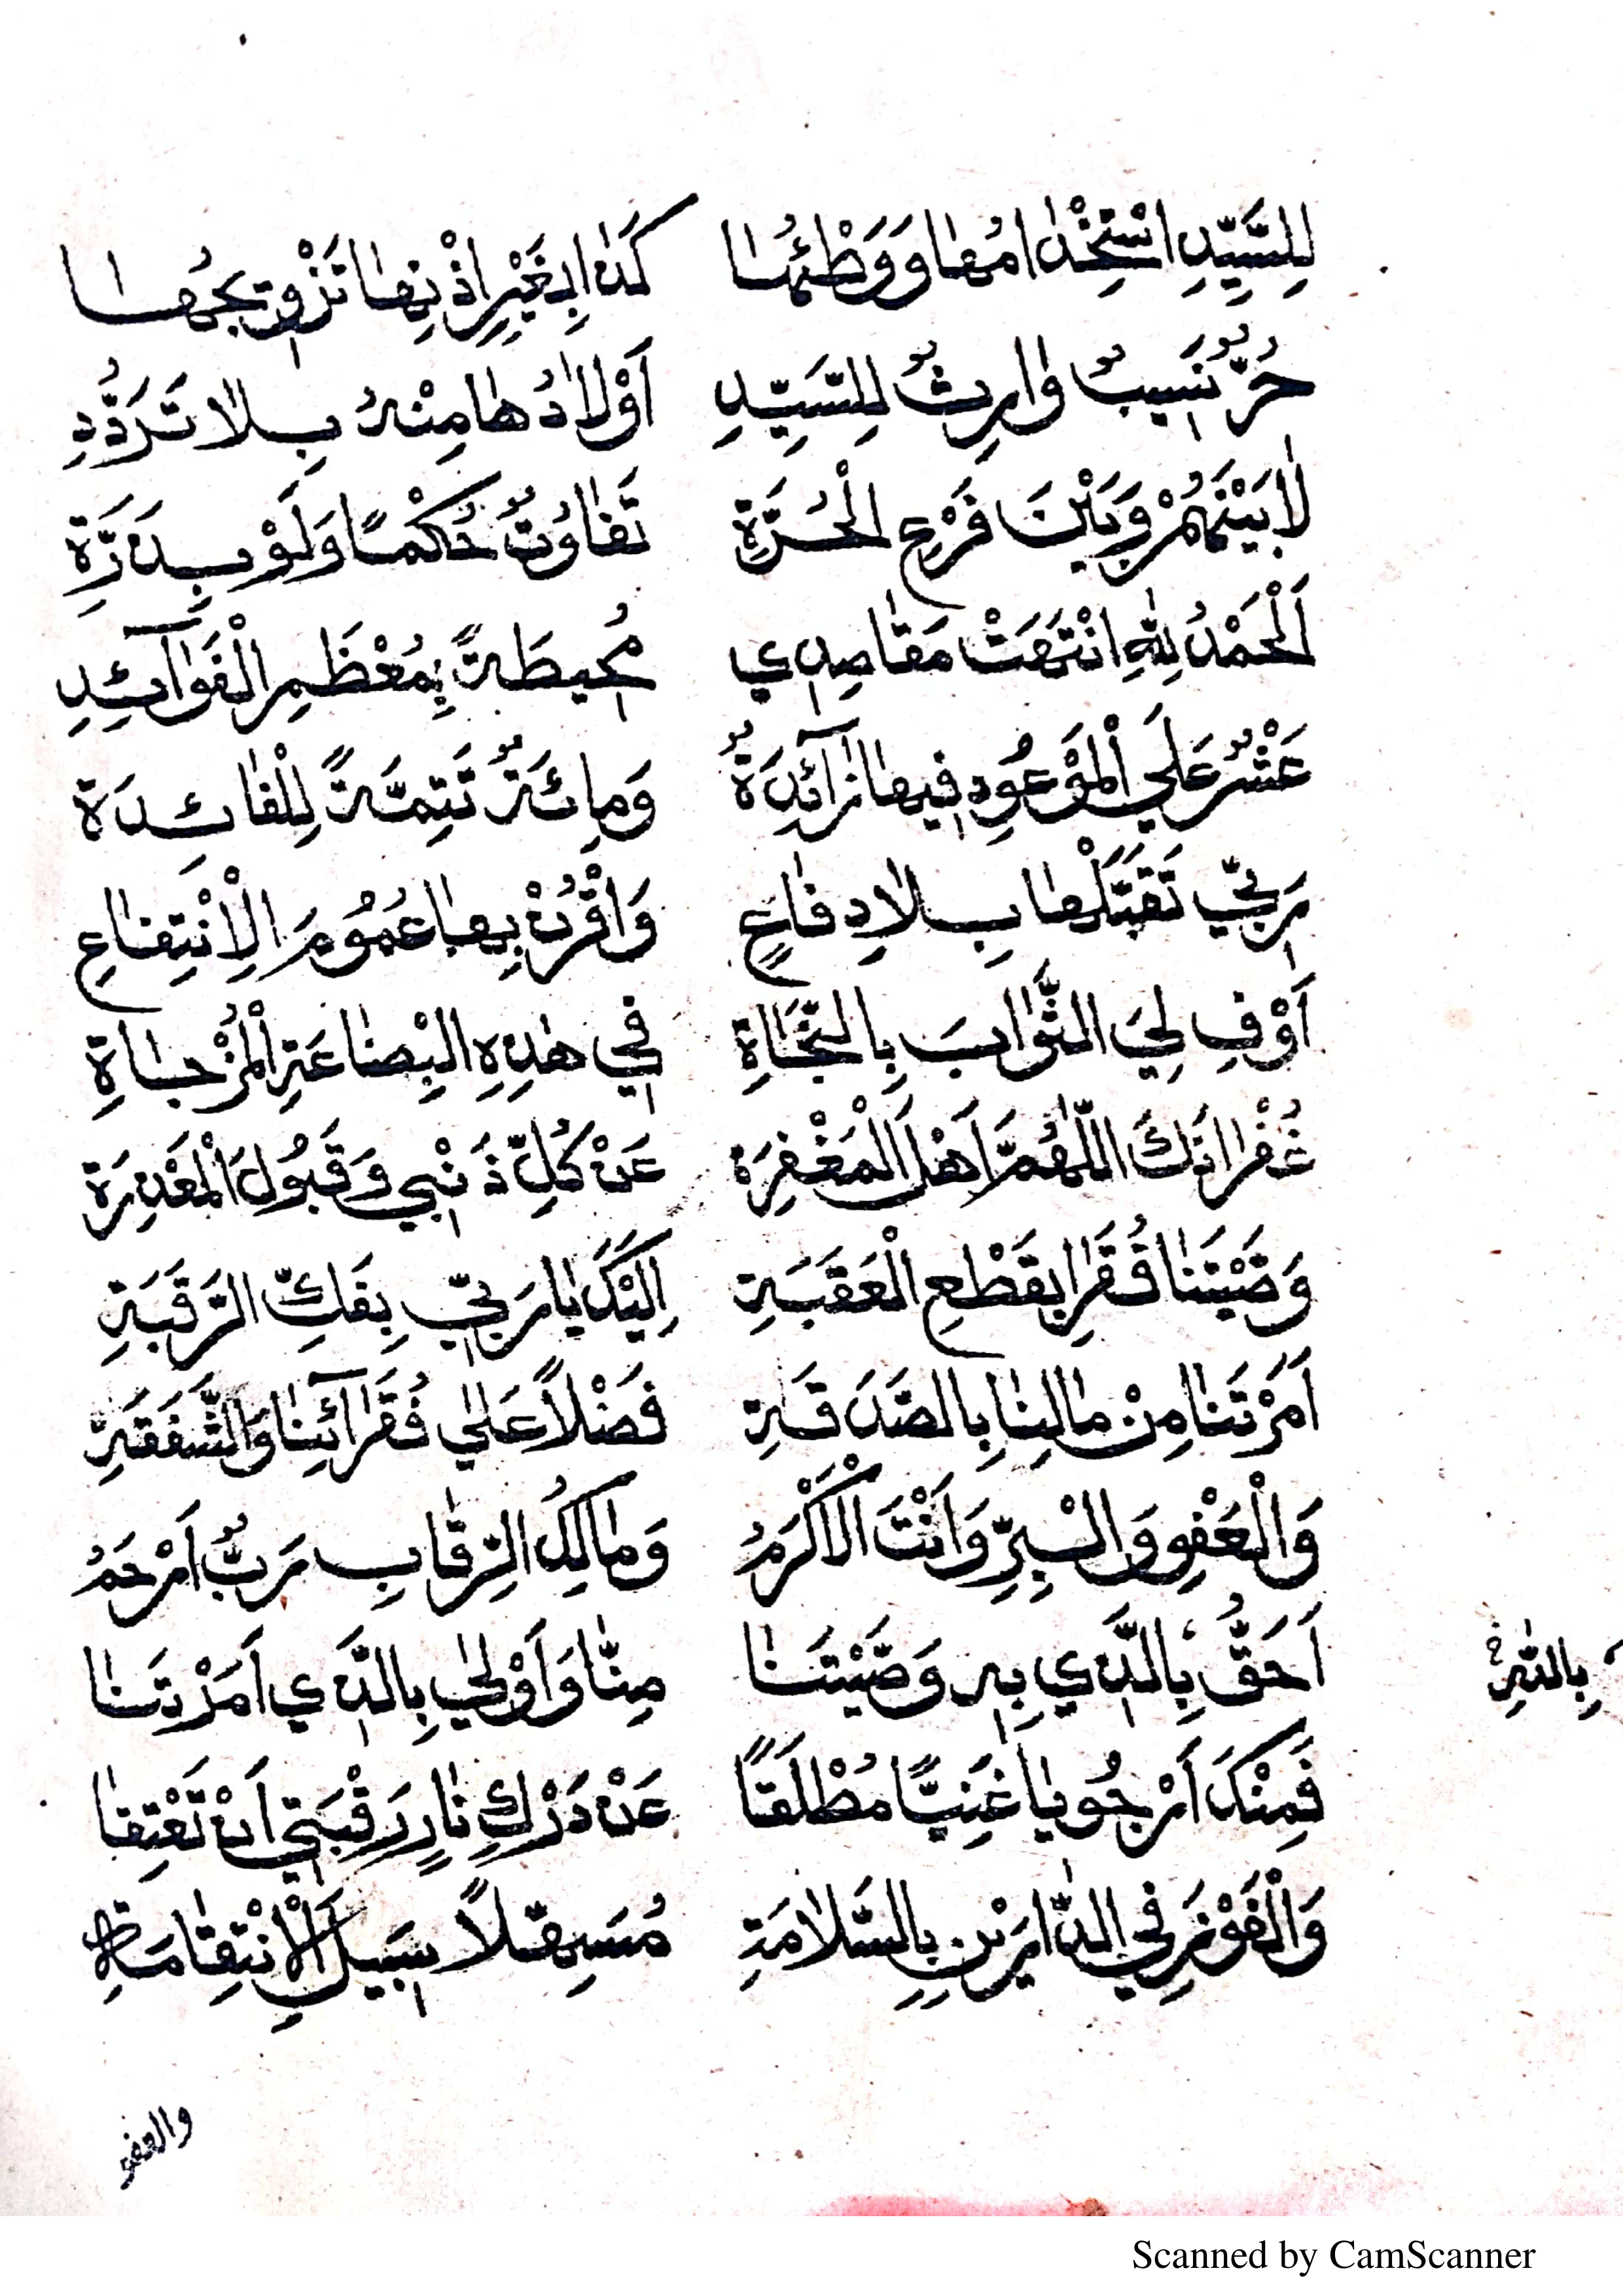 لِلسَّيِّدِ اسْتِخْدٰامُهٰا وَوَطْئُهٰا كَذٰا بِغَيْرِ اِذْنِهٰا تَزْوِيجُهٰا
حُرٌّ نَسِيبٌ وٰارِثٌ لِلسَّيِّدِ اَوْلاٰدُهٰا مِنْهُ بِلاٰ تَرَدُّدِ
لاٰ بَيْنَهُمْ وَبَيْنَ فَرْعِ الْحُرَّةِ تَفٰاوُتٌ حُكْمًا وَلَوْ بِذَرَّةِ
اَلْحَمْدُ لِلّٰهِ انْتَهَتْ مَقٰاصِدِي مُحِيطَةً بِمُعْظَمِ الْفَوٰآئِدِ
عَشْرٌ عَلَي الْمَوْعُودِ فِيهٰا زٰآئِدَةٌ وَمِائَةٌ تَتِمَّةً لِلْفٰائِدَة
رَبِّي تَقَبَّلْهٰا بِلاٰ دِفٰاعٍ وَاقْرُنْ بِهٰا عُمُومَ الْاِنْتِفٰاعِ
اَوْفِ لِيَ الثَّوٰابَ بِالنَّجٰاةِ فِي هٰذِهِ الْبِضٰاعَةِ الْمُزْجٰاةِ
غُفْرٰانَكَ اللّٰهُمَّ اَهْلَ الْمَغْفِرَة عَنْ كُلِّ ذَنْبِي وَقَبُولَ الْمَعْذِرَة
وَصَّيْتَنٰا فُقَرٰا بِقَطْعِ الْعَقَبَةِ اِلَيْكَ يٰا رَبِّي بِفَكِّ الرَّقَبَةِ
اَمَرْتَنٰا مِنْ مٰالِنٰا بِالصَّدَقَةِ فَضْلاً عَلٰي فُقَرٰآئِنٰا وَالشَّفَقَةِ
وَالْعَفْوِ وَالْبِرِّ وَاَنْتَ الْاَكْرَمُ وَمٰالِكُ الرِّقٰابِ رَبٌّ اَرْحَمُ
اَحَقُّ بِالَّذِي بِهِ وَصَّيْتَنٰا مِنّٰا وَاَوْلٰي بِالَّذِي اَمَرْتَنٰا
بِاللّٰهِ
فَمِنْكَ اَرْجُو يٰا غَنِيًّا مُطْلَقًا عَنْ دَرْكِ نٰارٍ رَقْبَتِي اَنْ تَعْتِقٰا
وَالْفَوْزَ فِي الدّٰارَيْنِ بِالسَّلاٰمَةِ مُسَهِّلاً سَبِيلَ الْاِسْتِقٰامَةِ
والعفو